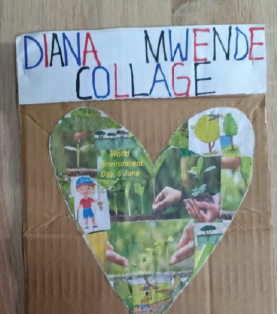 DIANA MWENDE
COLLAGE
World
Environment
Day, 5 June